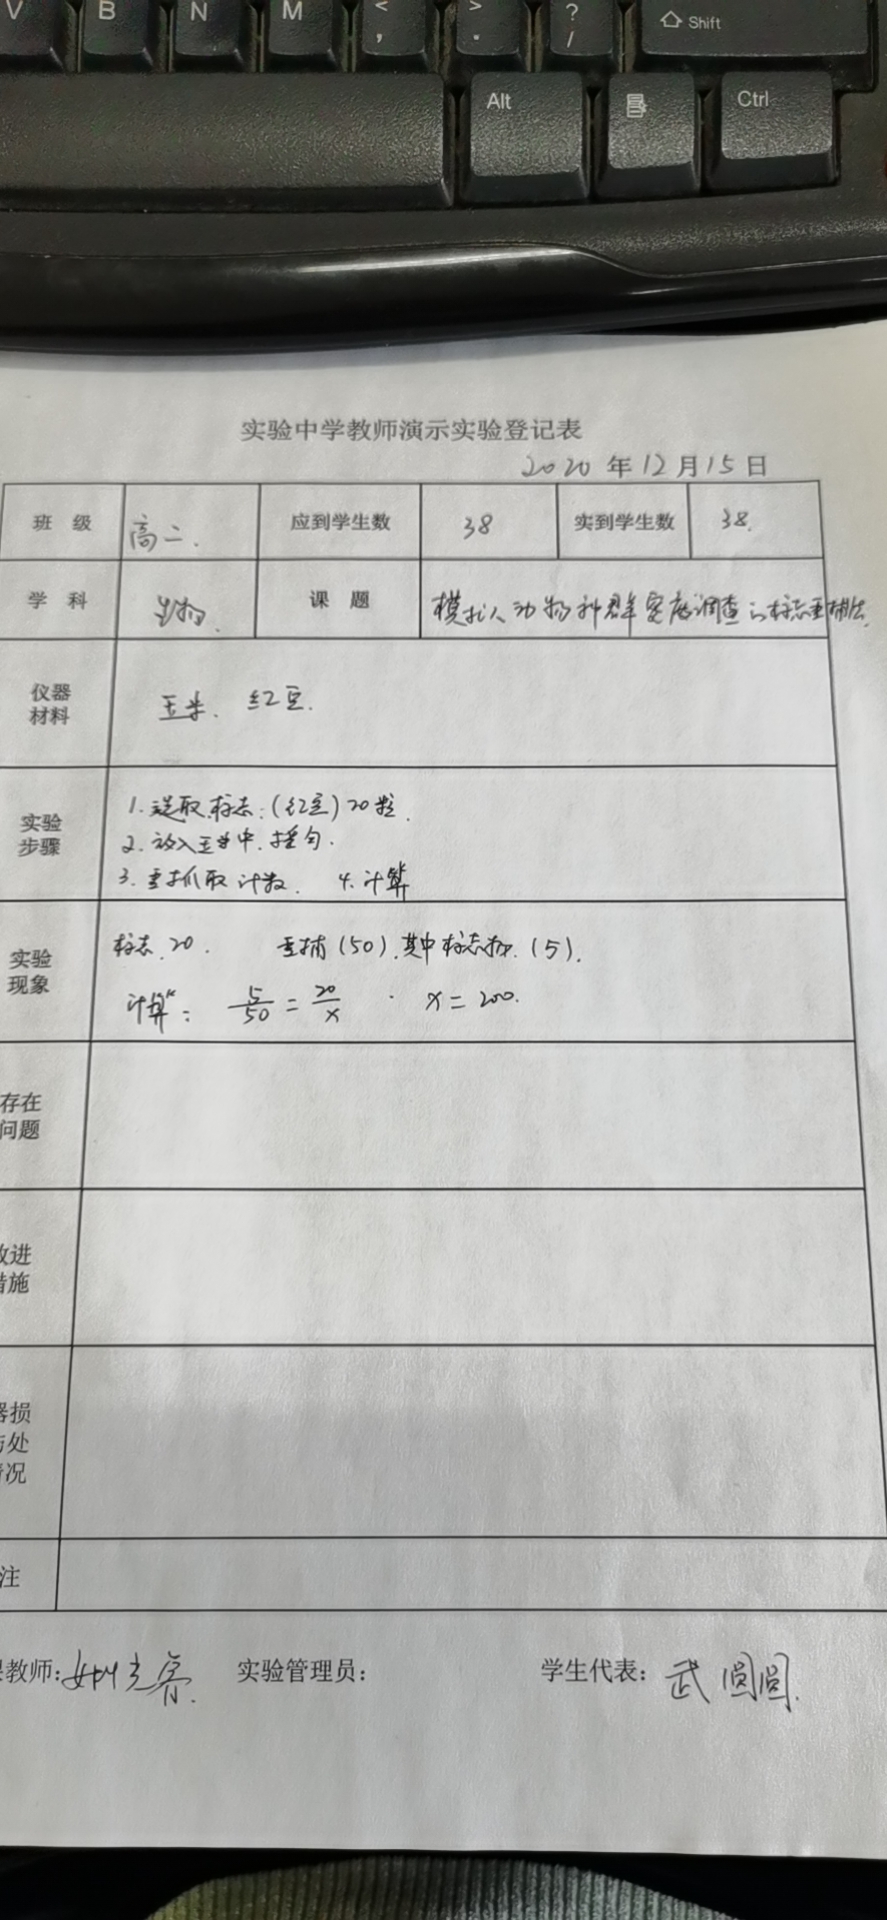 V B N M < , > . ? / Shift
Alt Ctrl
实验中学教师演示实验登记表
2020 年 12 月 15 日
班 级 高二. 应到学生数 38 实到学生数 38.
学 科 生物. 课 题 模拟动物种群密度调查的标志重捕法.
仪器
材料
玉米. 红豆.
实验
步骤
1. 选取标志:(红豆)20粒.
2. 放入玉米中.摇匀.
3. 重抓取计数. 4. 计算
实验
现象
标志.20. 重捕(50).其中标志物.(5).
计算: 5/50 = 20/x . x = 200.
存在
问题
改进
措施
器损
与处
情况
注
课教师: 实验管理员: 学生代表: 武圆圆.